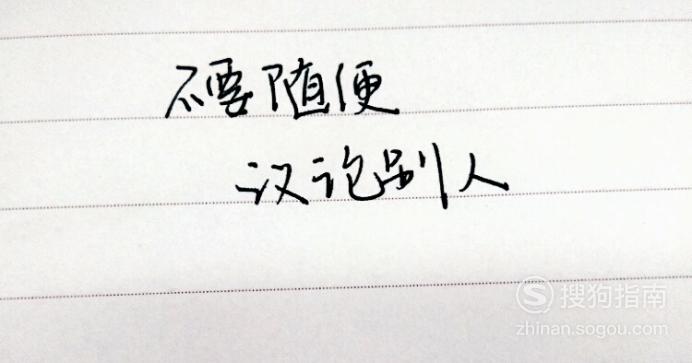 不要随便
议论别人
搜狗指南
zhinan.sogou.com